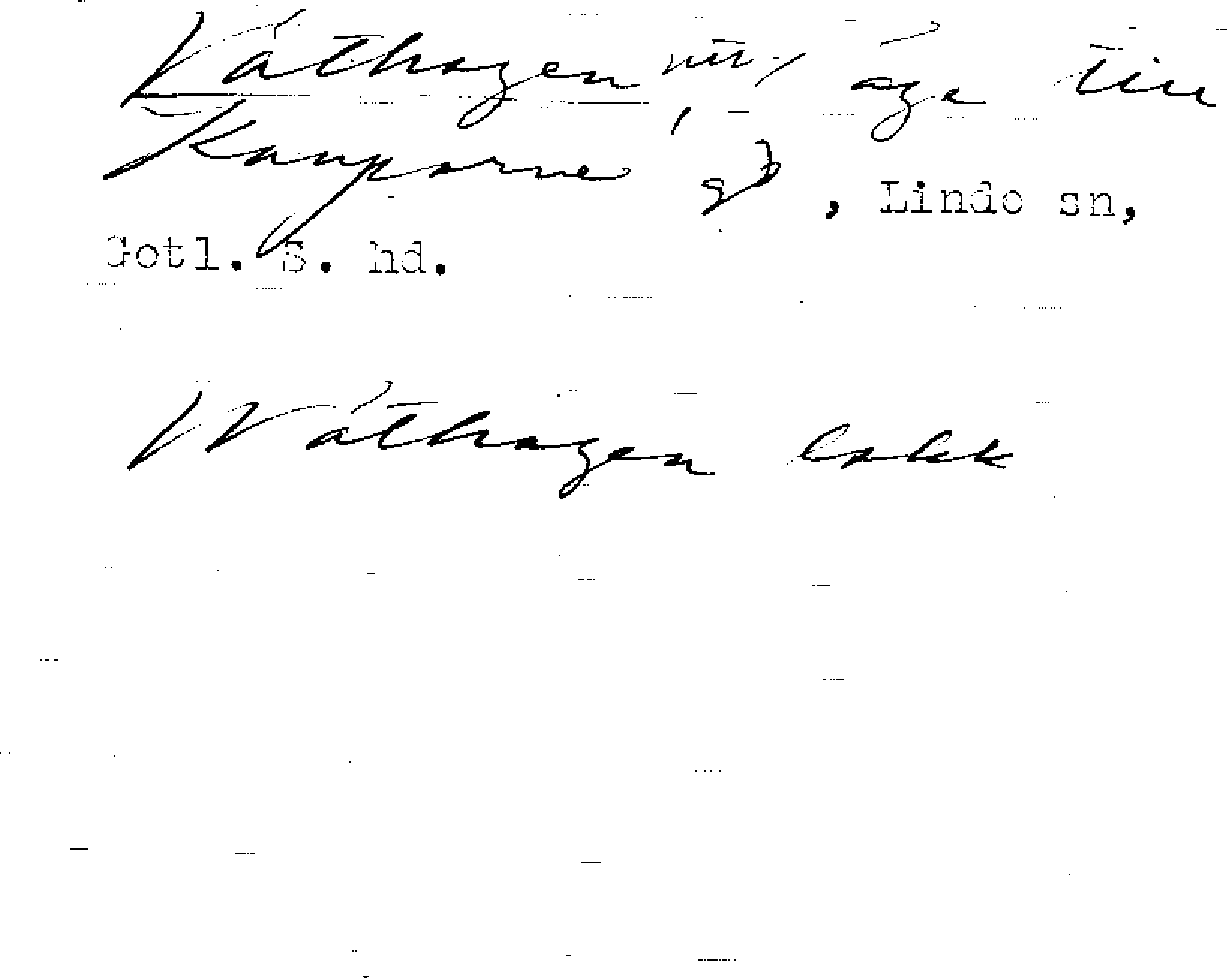 Våthagen äga till
Kauparve gd, Linde sn,
Gotl. S. hd.
Wåthagen lokk